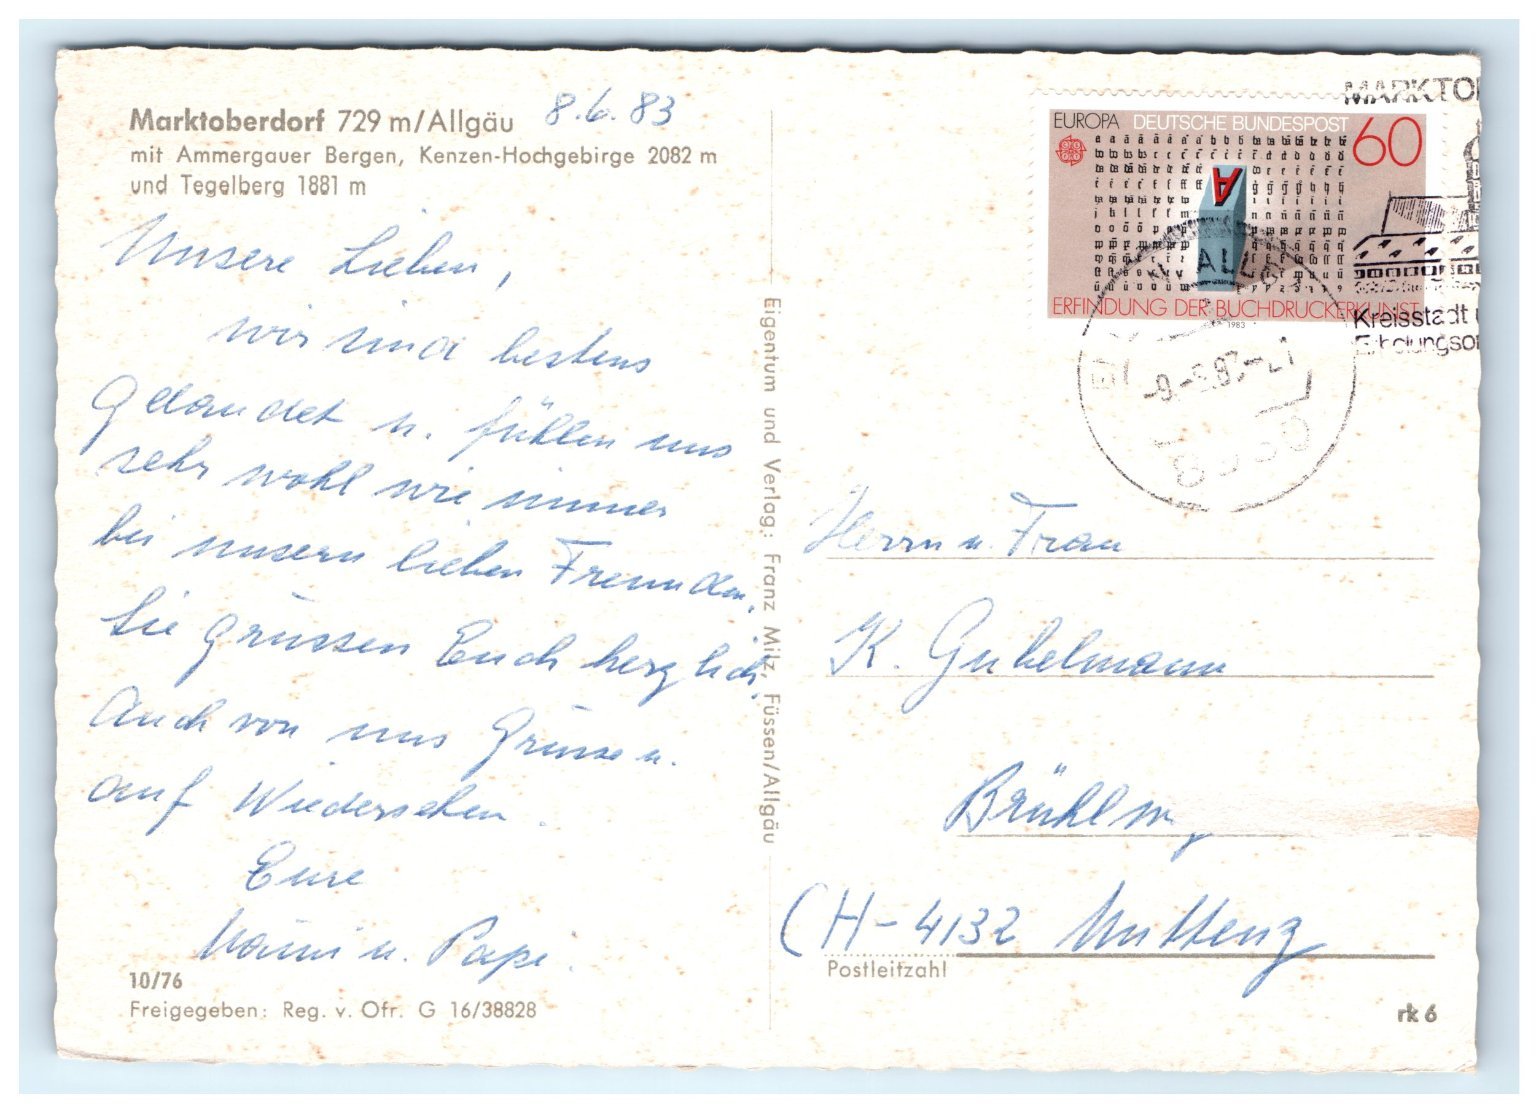 Marktoberdorf 729 m/Allgäu 8.6.83
mit Ammergauer Bergen, Kenzen-Hochgebirge 2082 m
und Tegelberg 1881 m
Unsere Lieben,
wir sind bestens
gelandet u. fühlen uns
sehr wohl wie immer
bei unsern lieben Freunden.
Sie grüssen Euch herzlich.
Auch von uns Grüsse u.
auf Wiedersehen.
Eure
u. Papi.
10/76
Freigegeben: Reg. v. Ofr. G 16/38828
Eigentum und Verlag: Franz Milz, Füssen/Allgäu
EUROPA DEUTSCHE BUNDESPOST 60
A
ERFINDUNG DER BUCHDRUCKERKUNST
1983
MARKTO
Kreisstadt u
Erholungsor
Herrn u. Frau
K. Gubelmann
Brühlw
CH-4132 Muttenz
Postleitzahl
rk 6